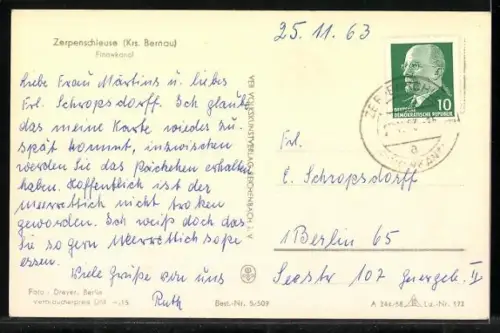 Zerpenschleuse (Krs. Bernau)
Finowkanal
25. 11. 63
Liebe Frau Martins u. liebes
Frl. Schropsdorff. Ich glaub
das meine Karte wieder zu
spät kommt, inzwischen
werden Sie das Päckchen erhalten
haben. Hoffentlich ist der
Meerrettich nicht troken
geworden. Ich weiß doch das
Sie so gern Meerrettichsoße
essen.
Viele Grüße von uns
Ruth
Foto: Dreyer, Berlin
Verbraucherpreis DM -,15
Best.-Nr. 5/509
10
DEUTSCHE
DEMOKRATISCHE REPUBLIK
a
Frl.
E. Schropsdorff
1 Berlin 65
Seestr 107 Quergeb. II
Lu.-Nr. 173